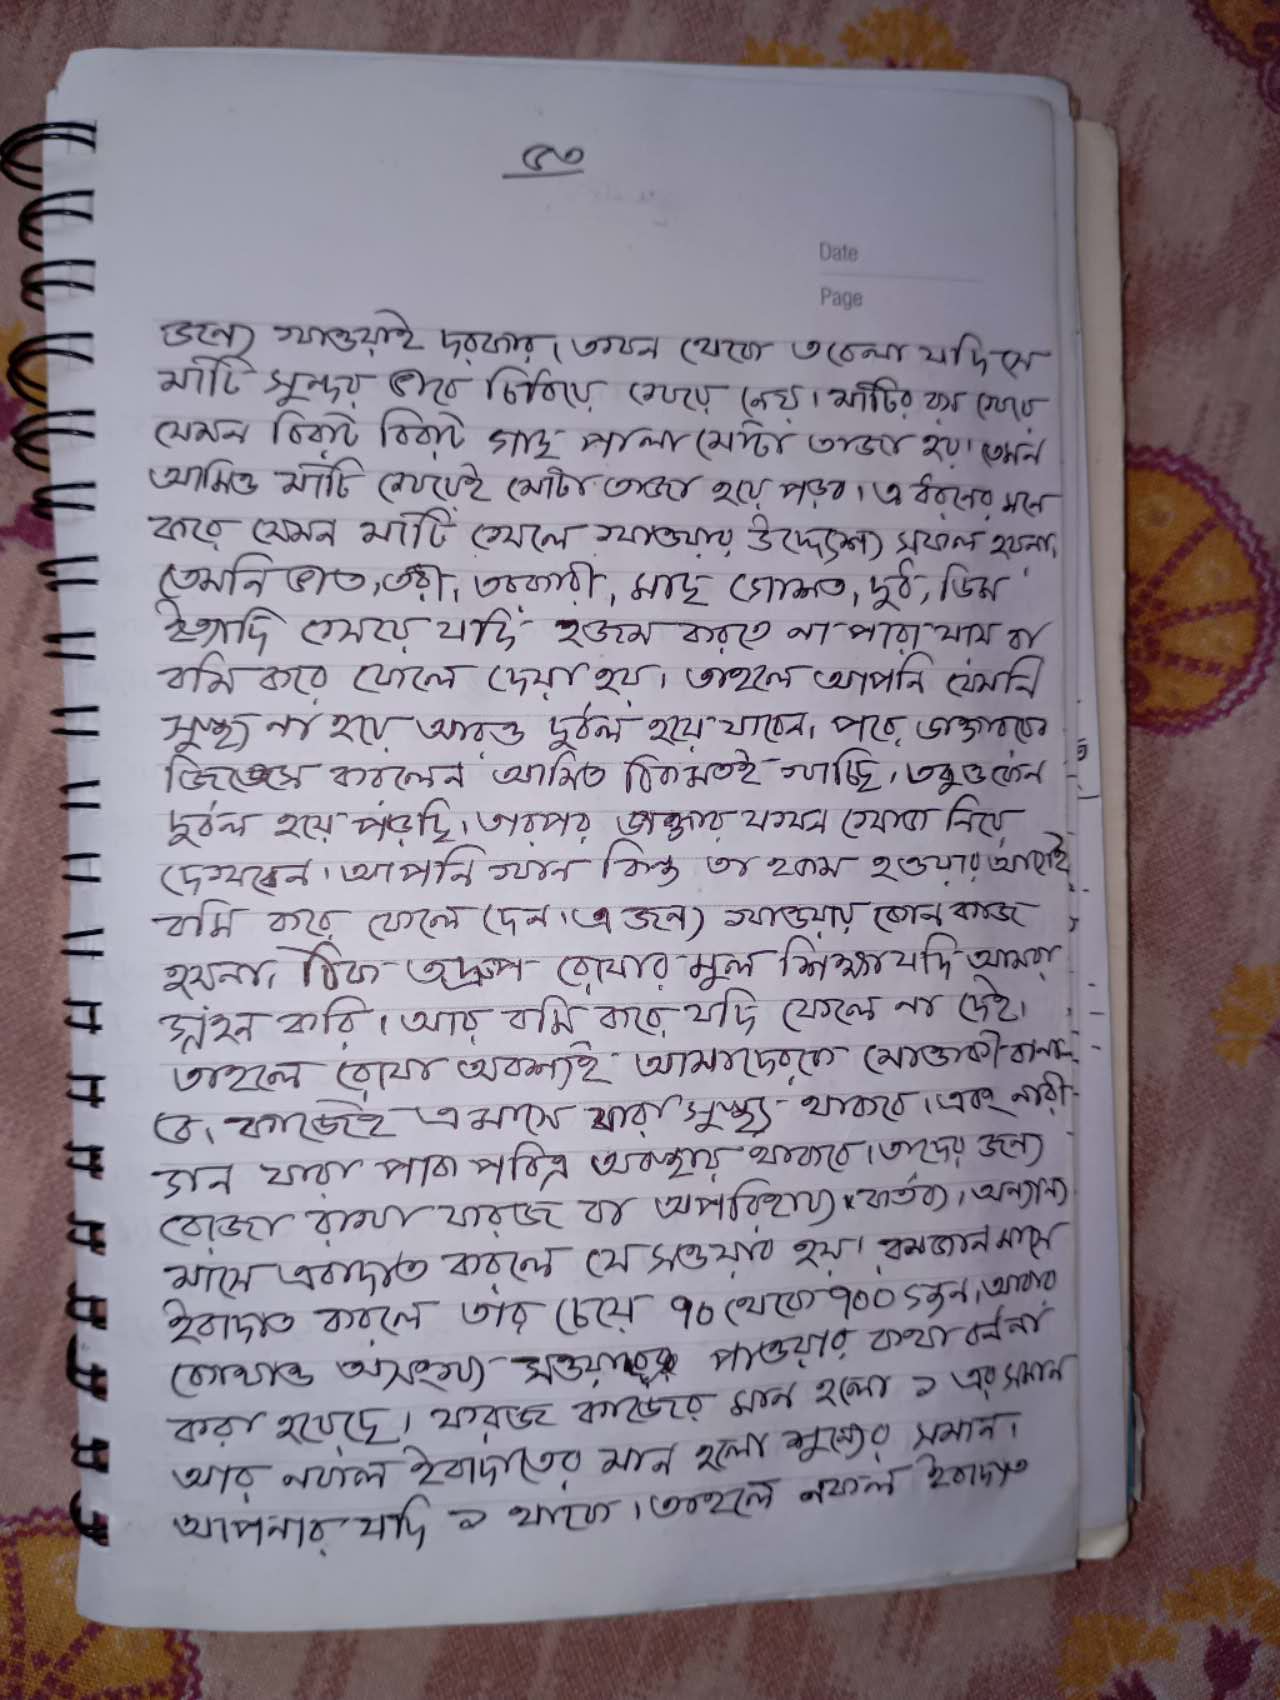 ৫৩
Date
Page
জন্যে খাওয়াই দরকার। তখন থেকে ৩ বেলা যদি সে
মাটি সুন্দর ভাবে চিবিয়ে খেয়ে নেয়। মাটির রস খেয়ে
যেমন বিরাট বিরাট গাছ পালা মোটা তাজা হয়। তেমন
আমিও মাটি খেয়েই মোটা তাজা হয়ে পড়ব। এ ধরনের মনে
করে যেমন মাটি খেলে খাওয়ার উদ্দেশ্যে সফল হয়না,
তেমনি ভাত, তরী, তরকারী, মাছ গোশত, দুধ, ডিম
ইত্যাদি খেয়ে যদি হজম করতে না পারা যায় বা
বমি করে ফেলে দেয়া হয়। তাহলে আপনি যেমনি
সুস্থ্য না হয়ে আরও দুর্বল হয়ে যাবেন। পরে ডাক্তারকে
জিজ্ঞেস করলেন আমিত ঠিকমতই খাচ্ছি, তবুও কেন
দুর্বল হয়ে পড়ছি। তারপর ডাক্তার যখন খোজ নিয়ে
দেখবেন। আপনি খান কিন্তু তা হজম হওয়ার আগেই
বমি করে ফেলে দেন। এ জন্যে খাওয়ায় কোন কাজ
হয়না। ঠিক তদ্রুপ রোযার মূল শিক্ষা যদি আমরা
গ্রহন করি। আর বমি করে যদি ফেলে না দেই।
তাহলে রোযা অবশ্যই আমাদেরকে মোত্তাকী বানা-
বে। কাজেই এ মাসে যারা সুস্থ্য থাকবে। এবং নারী
গন যারা পাক পবিত্র অবস্থায় থাকবে। তাদের জন্যে
রোজা রাখা ফরজ বা অপরিহার্য্য কর্তব্য। অন্যান্য
মাসে এবাদাত করলে যে সওয়াব হয়। রমজান মাসে
ইবাদাত করলে তার চেয়ে ৭০ থেকে ৭০০ গুন, আবার
কোথাও অসংখ্য সওয়াব পাওয়ার কথা বর্ননা
করা হয়েছে। ফরজ কাজের মান হলো ১ এর সমান
আর নফল ইবাদাতের মান হলো শুন্যের সমান।
আপনার যদি ১ থাকে। তাহলে নফল ইবাদাত